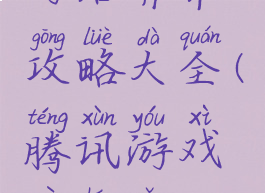 gōng lüè dà quán
攻略大全(
téng xùn yóu xì
腾讯游戏